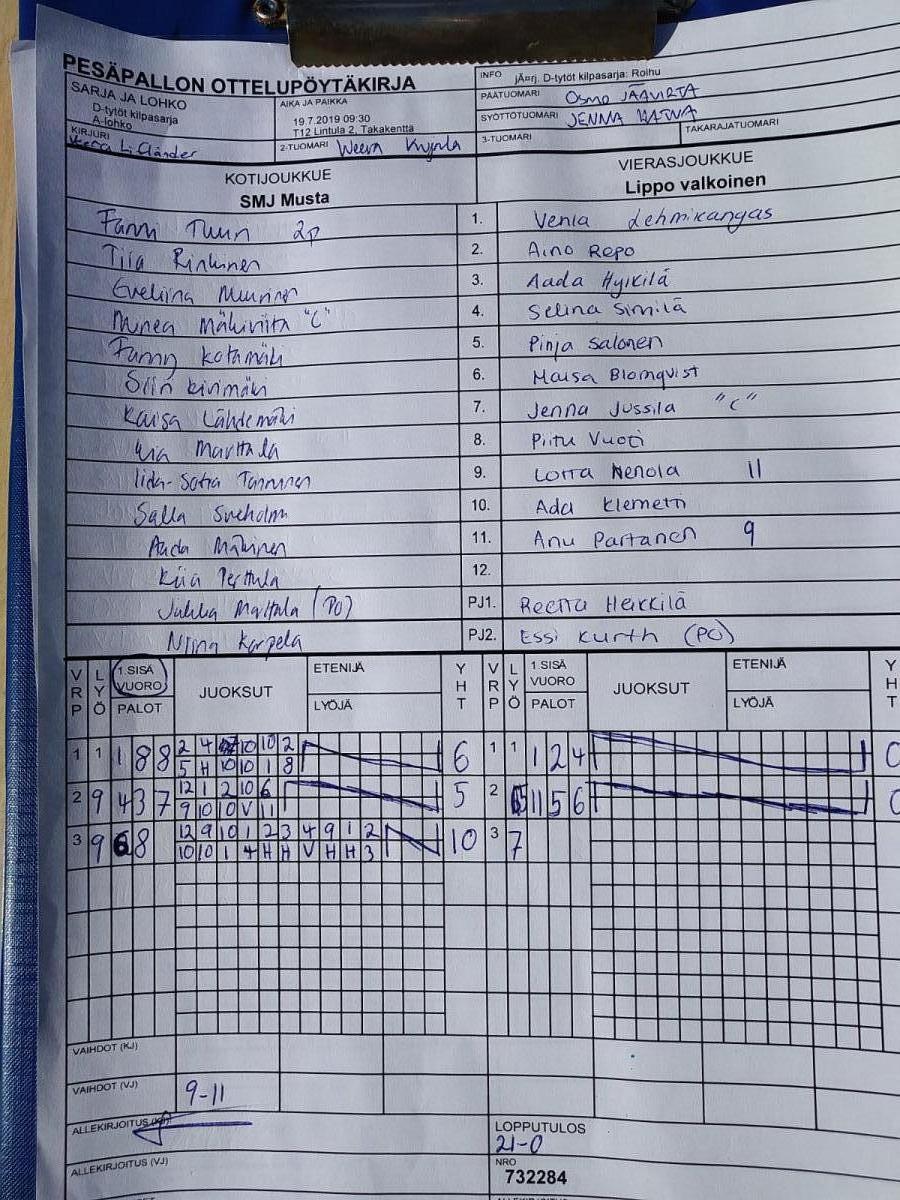 PESÄPALLON OTTELUPÖYTÄKIRJA
INFO jÄ¤rj. D-tytöt kilpasarja: Roihu
SARJA JA LOHKO
D-tytöt kilpasarja
A-lohko
AIKA JA PAIKKA
19.7.2019 09:30
T12 Lintula 2, Takakenttä
PÄÄTUOMARI Osmo
SYÖTTÖTUOMARI JENNA
KIRJURI
2-TUOMARI Weera
3-TUOMARI
TAKARAJATUOMARI
KOTIJOUKKUE
SMJ Musta
VIERASJOUKKUE
Lippo valkoinen
Fanni Tuuri 2p 1. Venla Lehmikangas
Tiia Rinkinen 2. Aino Repo
Eveliina Muurinen 3. Aada Hyikilä
Minea Mäkiviita "C" 4. Selina Similä
Fanny Kotamäki 5. Pinja Salonen
Siiri Kivimäki 6. Maisa Blomqvist
Kaisa Lähdemäki 7. Jenna Jussila "C"
Marttala 8. Piitu Vuoti
Iida-Sofia Tanninen 9. Lotta Nenola 11
Salla Sveholm 10. Ada Klemetti
Aada Mäkinen 11. Anu Partanen 9
Kiia Perttula 12.
Jukka Marttala (PO) PJ1. Reetta Heikkilä
Niina Karpela PJ2. Essi Kurth (PO)
VRP LYÖ 1.SISÄ VUORO PALOT JUOKSUT ETENIJÄ LYÖJÄ YHT VRP LYÖ 1.SISÄ VUORO PALOT JUOKSUT ETENIJÄ LYÖJÄ YHT
1 1 1 8 8 2 4 10 10 2 6 1 1 1 2 4 0
5 H 10 10 1 8
2 9 4 3 7 12 1 2 10 6 5 2 11 5 6 0
9 10 10 V 11
3 9 6 8 12 9 10 1 2 3 4 9 1 2 10 3 7
10 10 1 4 H H V H H 3
VAIHDOT (KJ)
VAIHDOT (VJ) 9-11
ALLEKIRJOITUS (KJ)
LOPPUTULOS
21-0
ALLEKIRJOITUS (VJ)
NRO
732284